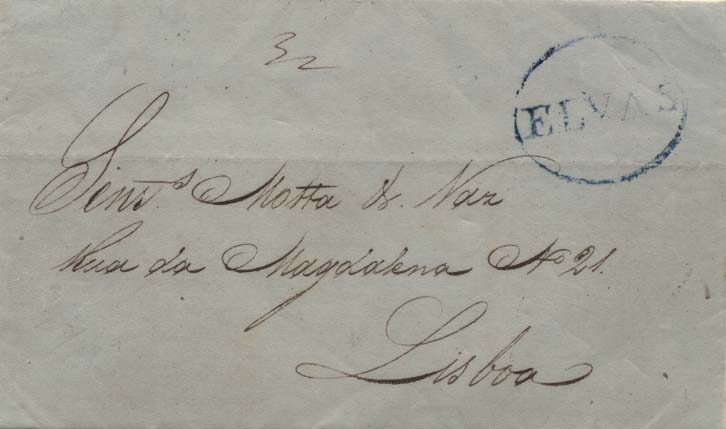 ELVAS
Senr.s Motta & Vaz
Rua da Magdalena No 21.
Lisboa